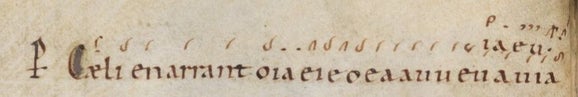 iaeu.
P Cæli enarrant oia eie o e a auu eu a uia